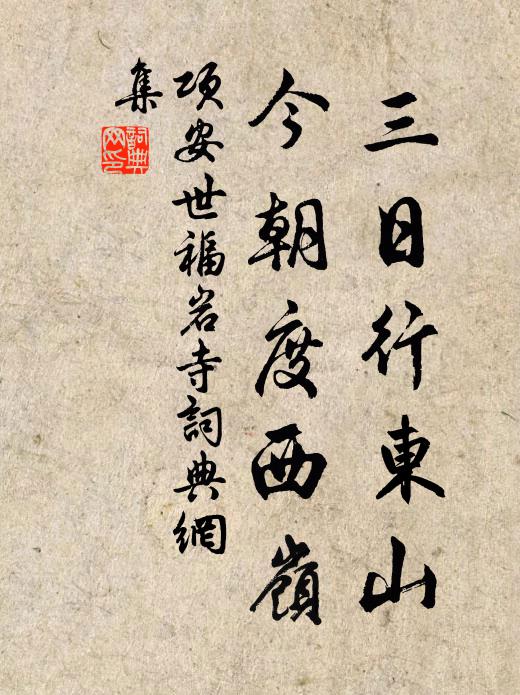 三日行東山
今朝度西嶺
項安世福岩寺詞典網
集
詞典
网印